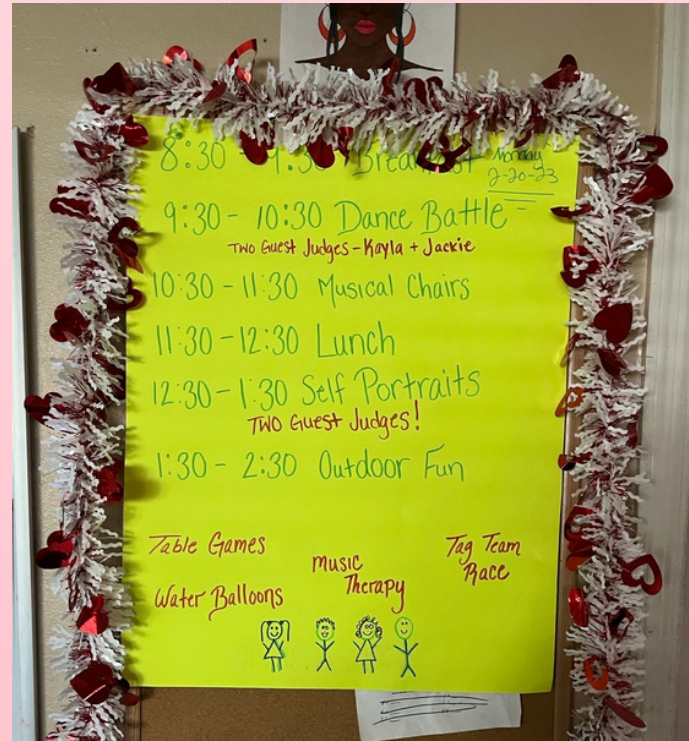 8:30 - 9:30 Breakfast
Monday
2-20-23
9:30 - 10:30 Dance Battle
TWO Guest Judges - Kayla + Jackie
10:30 - 11:30 Musical Chairs
11:30 - 12:30 Lunch
12:30 - 1:30 Self Portraits
TWO Guest Judges!
1:30 - 2:30 Outdoor Fun
Table Games
Music
Therapy
Tag Team
Race
Water Balloons